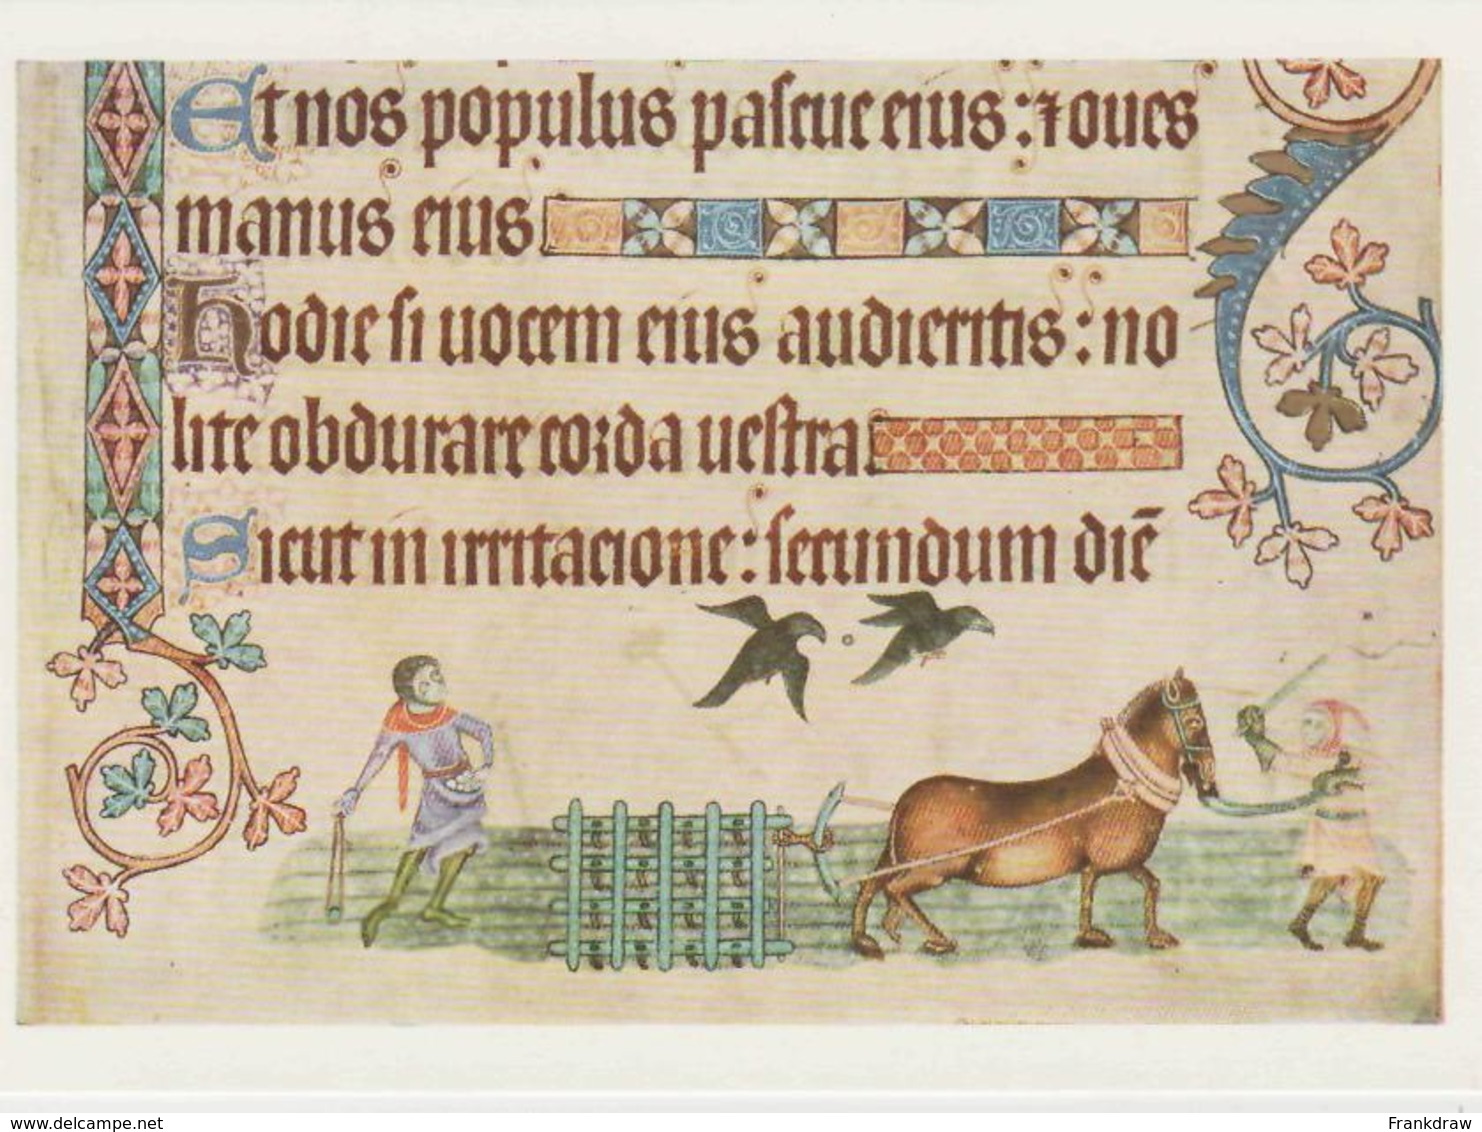 Et nos populus pascue eius: ⁊ oues
manus eius
hodie si uocem eius audieritis: no
lite obdurare corda uestra.
Sicut in irritacione: secundum diē
delcampe.net
Frankdraw